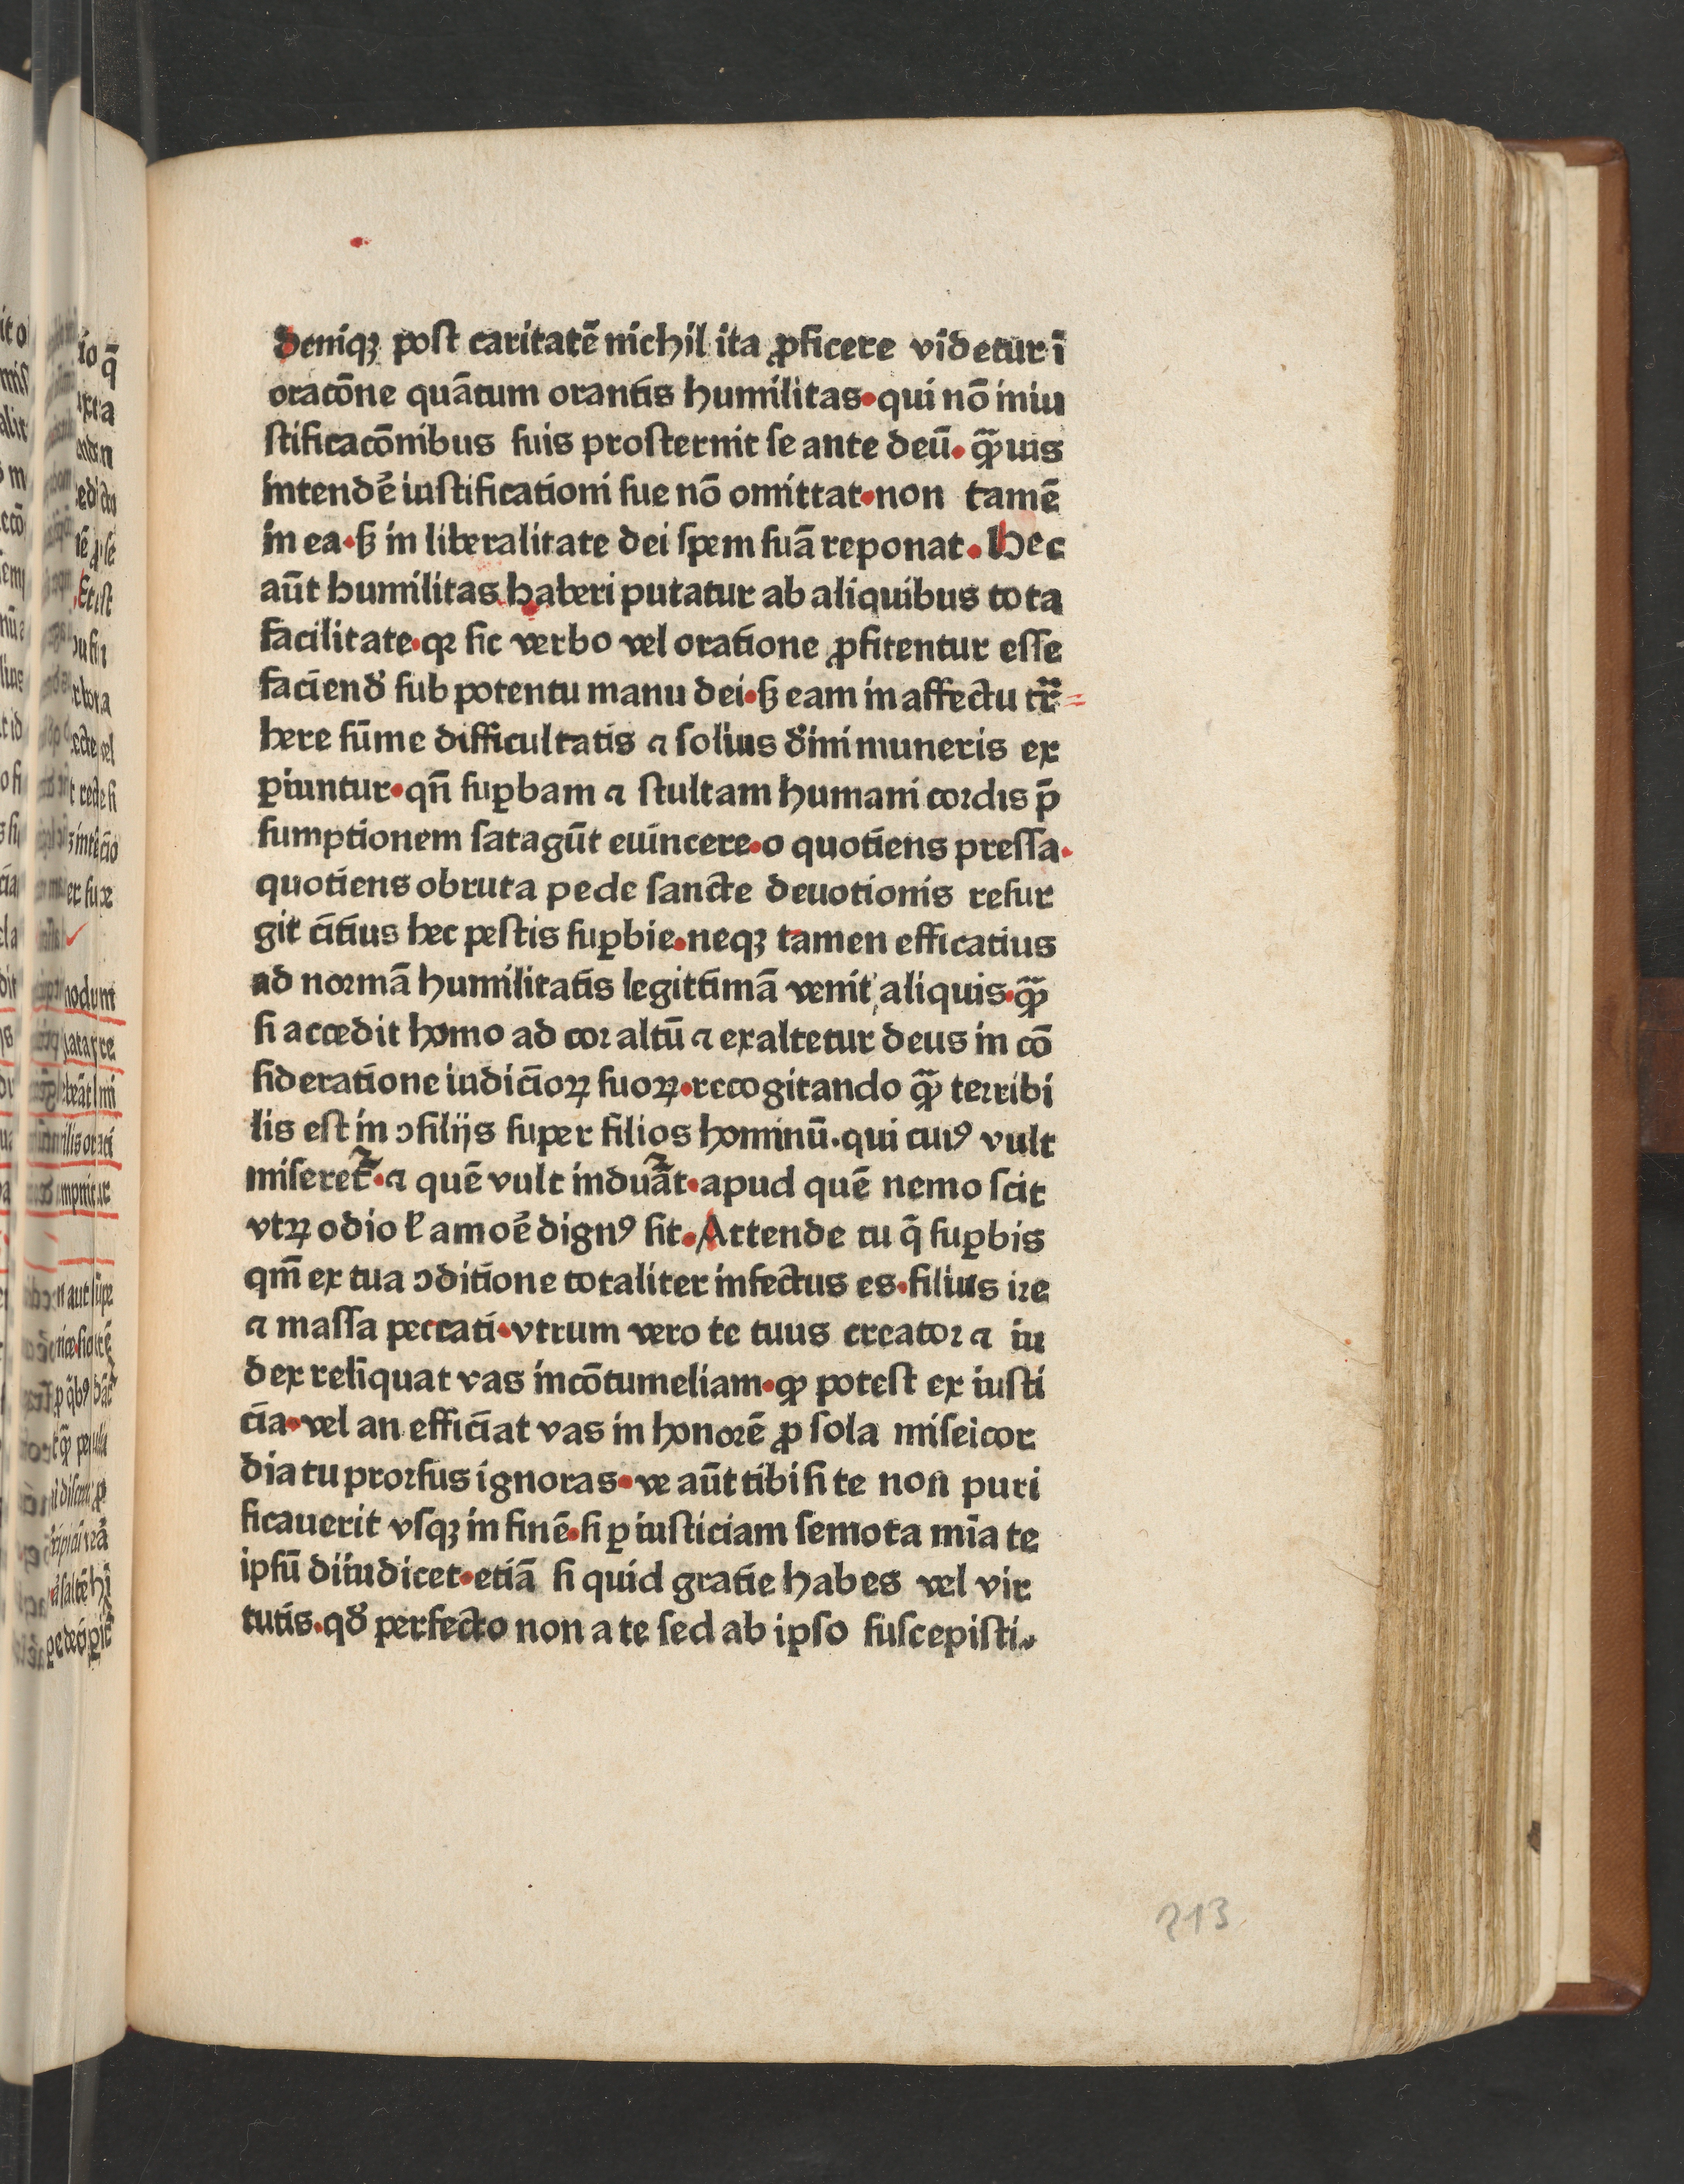 Deniqꝫ post caritatē nichil ita ꝓficere videtur ī
oracōne quātum orantis humilitas·qui nō iniu
stificacōnibus suis prosternit se ante deū·qͣꝫuis
intendē iustificationi sue nō omittat·non tamē
in ea·sꝫ in liberalitate dei spem suā reponat·Hec
aūt humilitas haberi putatur ab aliquibus tota
facilitate·qꝛ sic verbo vel oratione ꝓfitentur esse
faciend̄ sub potentu manu dei·sꝫ eam in affectu trͣ=
here sūme difficultatis ⁊ solius d̄ini muneris ex
ꝑiuntur·qn̄ suꝑbam ⁊ stultam humani cordis p̄
sumptionem satagūt euincere·o quotiens pressa·
quotiens obruta pede sancte deuotionis resur
git citius hec pestis suꝑbie·neqꝫ tamen efficatius
ad normā humilitatis legittimā venit aliquis·qͣꝫ
si accedit homo ad cor altū ⁊ exaltetur deus in cō
sideratione iudicioꝝ suoꝝ·recogitando qͣꝫ terribi
lis est in ↄsilijs super filios hominū·qui cuiꝰ vult
miseretᷣ·⁊ quē vult induāt·apud quē nemo scit
vtꝝ odio ꝉ amoē dignꝰ sit·Attende tu q̄ suꝑbis
qm̄ ex tua ↄditione totaliter infectus es·filius ire
⁊ massa peccati·vtrum vero te tuus creator ⁊ iu
dex reliquat vas in cōtumeliam·qꝫ potest ex iusti
cia·vel an efficiat vas in honorē ꝓ sola miseicor
dia tu prorsus ignoras·ve aūt tibi si te non puri
ficauerit vsqꝫ in finē·si ꝑ iusticiam semota mīa te
ipsū diiudicet·etiā si quid gratie habes vel vir
tutis·qd̄ perfecto non a te sed ab ipso suscepisti·
213